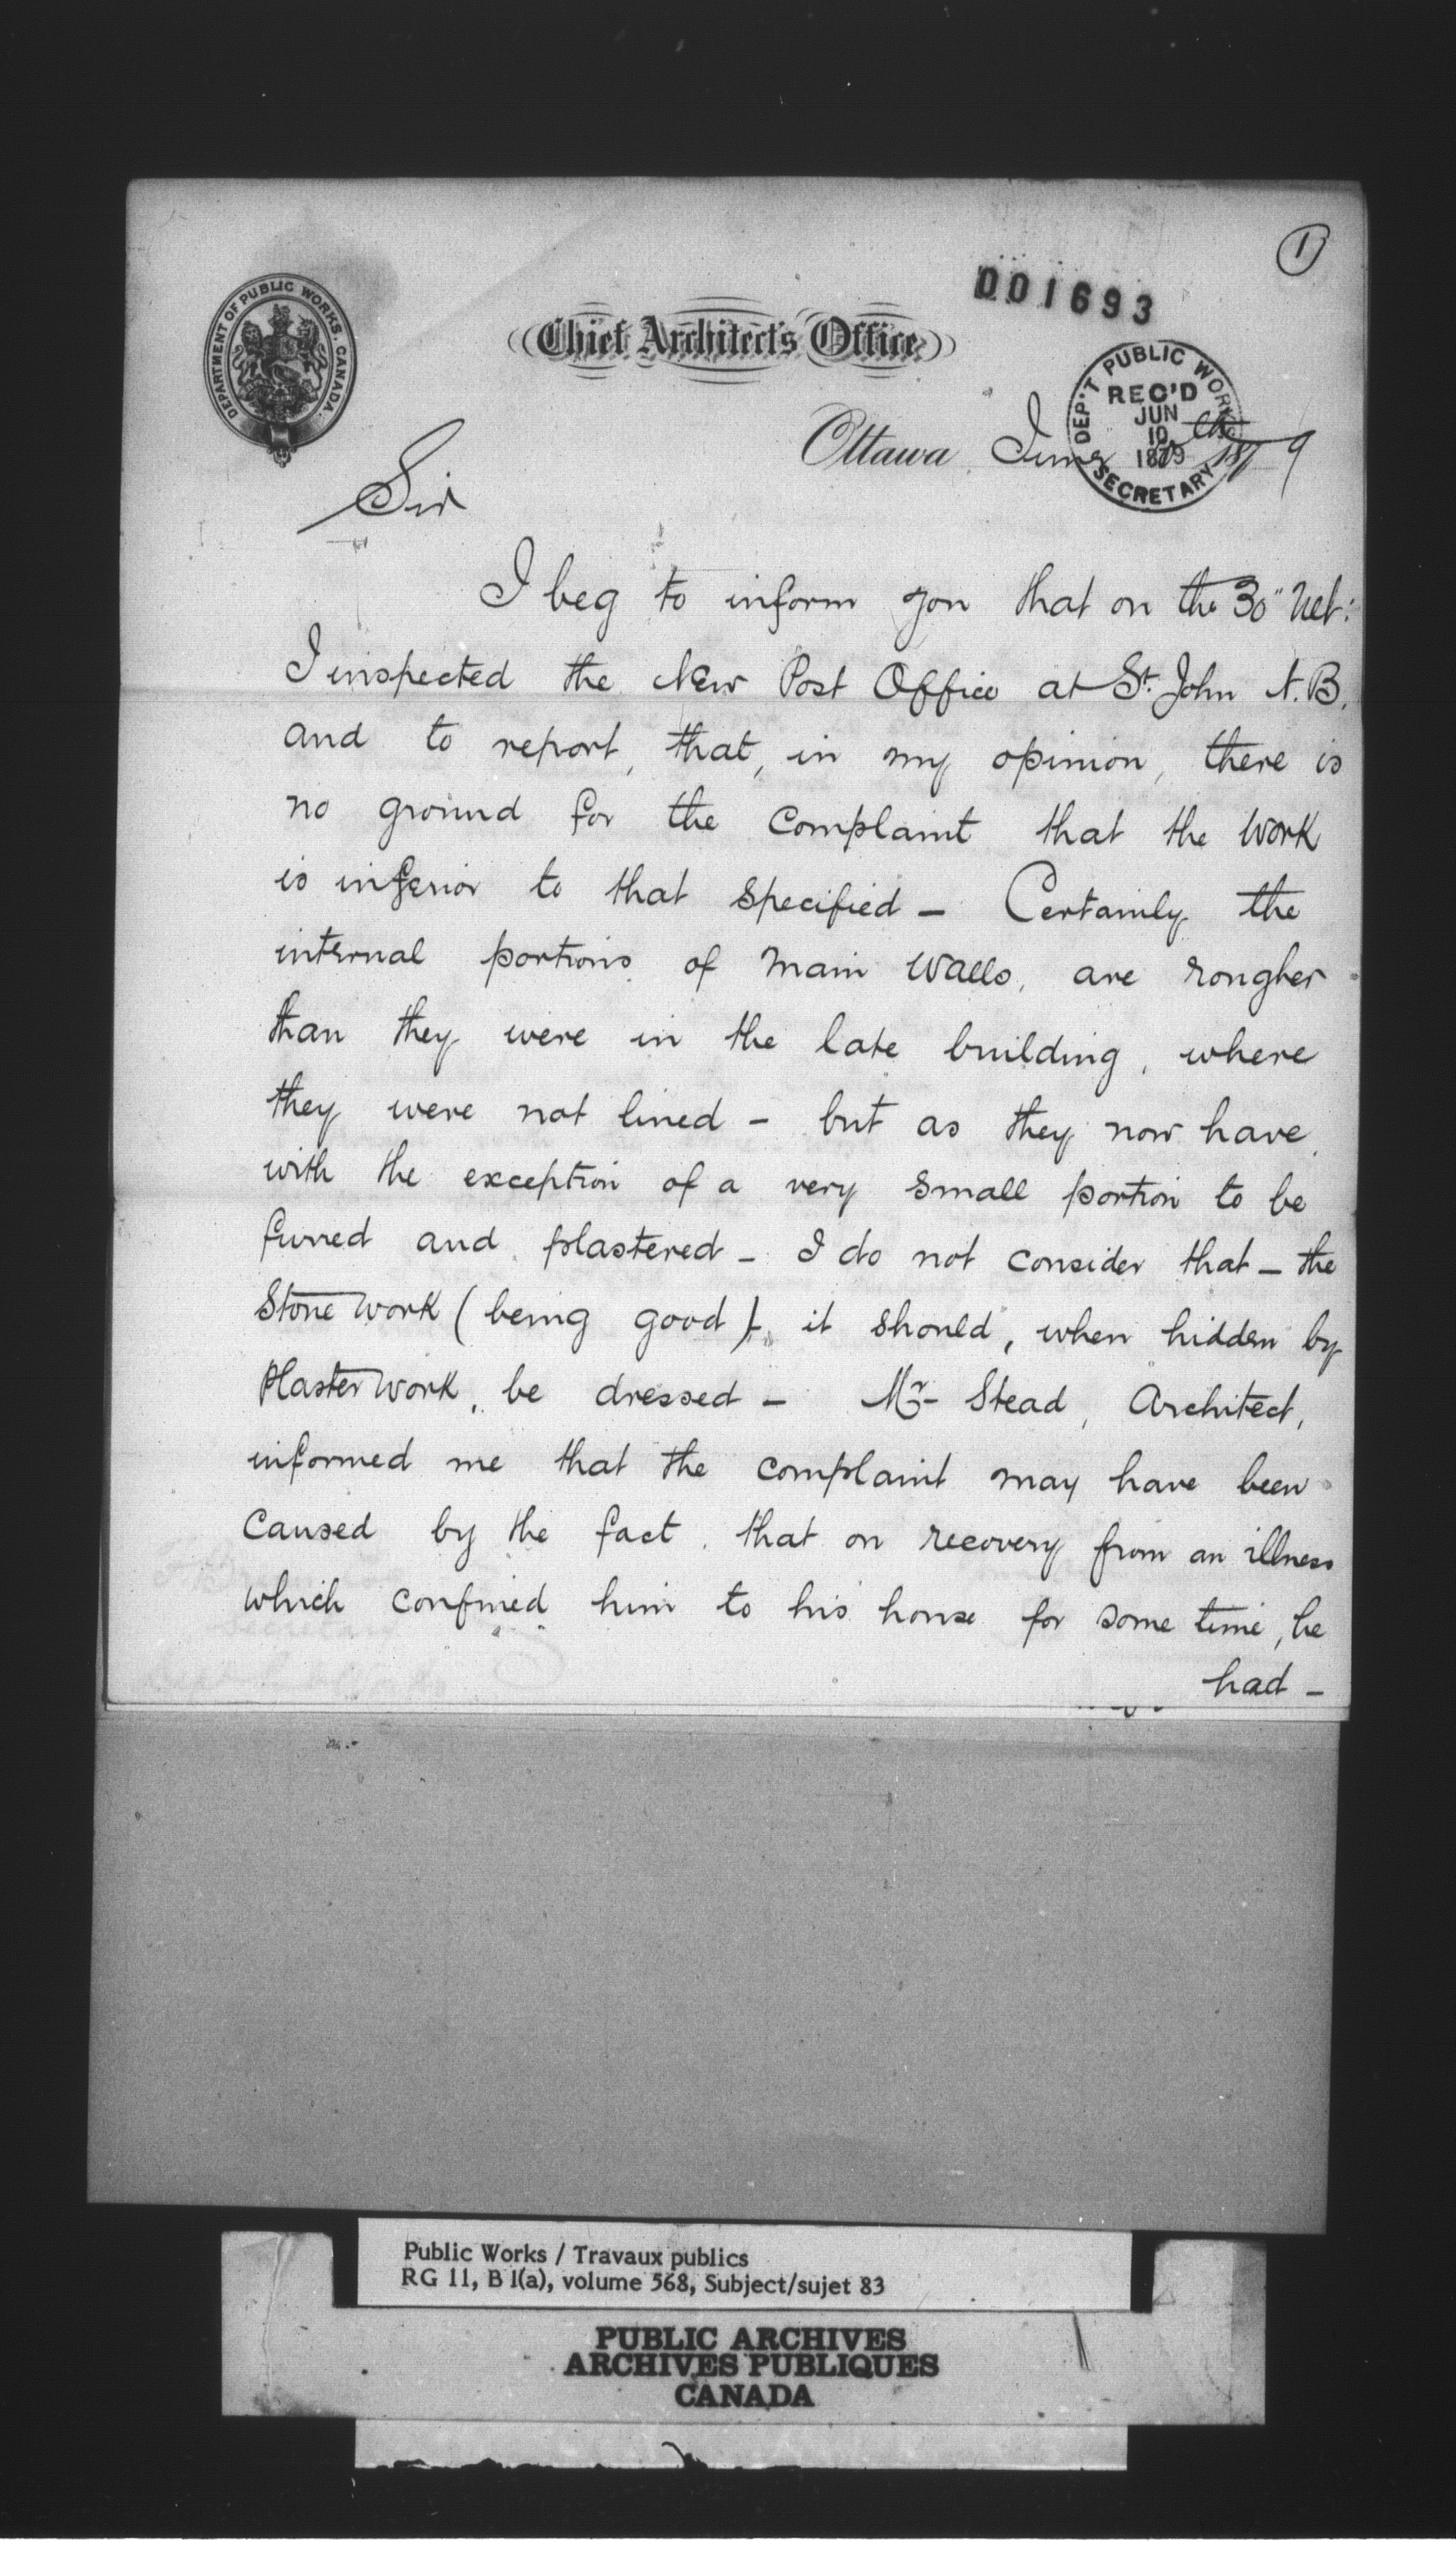 1
001693
DEPARTMENT OF PUBLIC WORKS. CANADA.
Chief Architect's Office
DEP'T PUBLIC WORKS
REC'D
JUN
10
1879
SECRETARY
Ottawa June 1879
Sir
I beg to inform you that on the 30" Ult:
I inspected the New Post Office at St. John N.B.
and to report, that, in my opinion, there is
no ground for the Complaint that the Work
is inferior to that specified — Certainly the
internal portions of Main Walls, are rougher
than they were in the late building, where
they were not lined — but as they now have,
with the exception of a very small portion to be
furred and plastered — I do not consider that — the
Stone Work (being good) it should, when hidden by
Plaster Work, be dressed — Mr. Stead, Architect,
informed me that the complaint may have been
Caused by the fact, that on recovery from an illness
which confined him to his house for some time, he
had —
Public Works / Travaux publics
RG 11, B 1(a), volume 568, Subject/sujet 83
PUBLIC ARCHIVES
ARCHIVES PUBLIQUES
CANADA